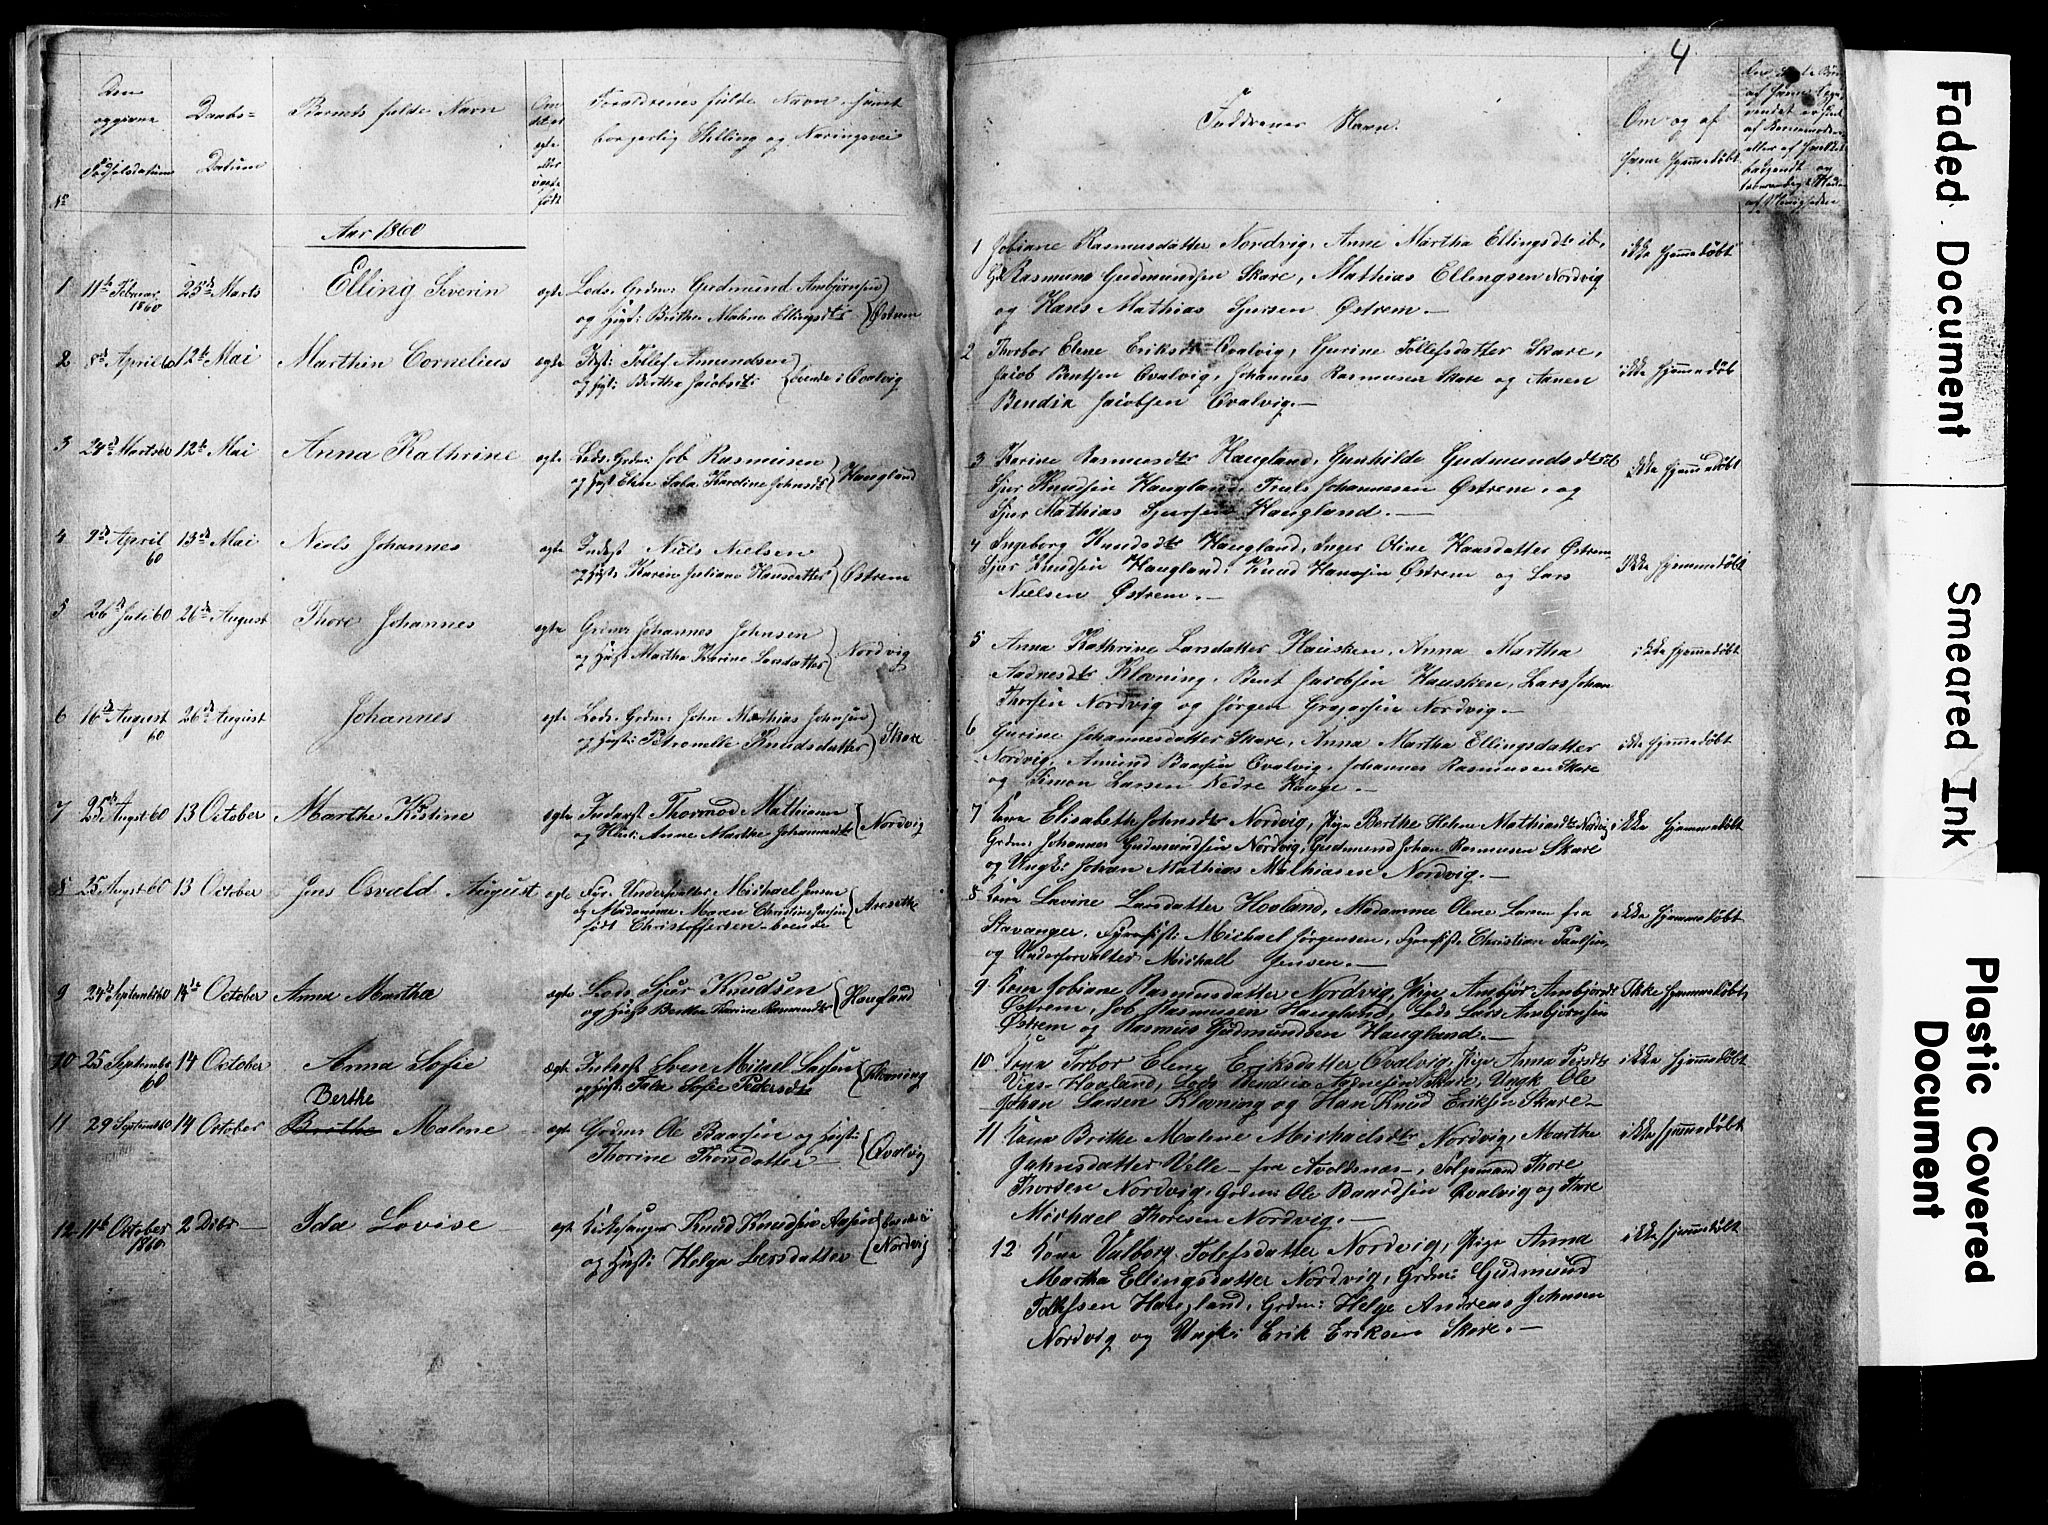 4
Den opgivne Fødselsdatum
Daabs-Datum
Barnets fulde Navn
Om det er egte eller uegte født
Forældrenes fulde Navn, samt borgerlig Stilling og Næringsvei
No
Aar 1860
1 11te Februar 1860 25de Marts Elling Severin egte Lods. Grdm: Gudmund Ambjørnsen
og Hust: Brithe Malene Ellingsdtr Østrem
2 8de April 60 12te Mai Marthin Cornelius egte Indst: Tollef Amundsen
og Hust: Bertha Jacobsdt: boende i Qvalvig
3 24de Marts 60 12te Mai Anna Kathrine egte Lods. Grdm: Job Rasmusen
og Hust Elen Tala Karoline Johnsdt Haugland
4 9de April 60 13de Mai Niels Johannes egte Indst Niels Nielsen
og Hust: Karen Juliane Hansdatter Østrem
5 26de Juli 60 26de August Thore Johannes egte Grdm: Johannes Johnsen
og Hust Martha Karine Larsdatter Nordvig
6 16de August 60 26de August Johannes egte Lods. Grdm: John Mathias Johnsen
og Hust: Petronelle Knudsdatter Skare
7 25de Augst 60 13 October Marthe Kristine egte Inderst Thormod Mathiasen
og Hust: Anne Marthe Johannesdtr Nordvig
8 25 Augst 60 13 October Jens Osvald August egte Fyr-Underforvalter Michael Jensen
og Madamme Maren Christine Jensen
født Christoffersen - boende
9 24de Septemb 60 14de October Anna Martha ægte Lods Sjur Knudsen
og Hust Berthe Karine Rasmusdtr Haugland
10 25 Septembr 60 14 October Anna Sofie ægte Inderst Sven Mikael Larsen
og Hust: Tala Sofie Pedersdtr Kløvning
Berthe
11 29 Septemb 60 14 October Brithe Malene egte Grdm: Ole Baarsen og Hust:
Thorine Thorsdatter Qvalvig
12 11te October 1860 2 Decbr Ida Lovise egte Kirkesanger Knud Knudsen Aasen
og Hust: Helga Larsdatter boende i Nordvig
Faddrenes Navn.
Om og af hvem hjemmedøbt
1 Jobiane Rasmusdatter Nordvig, Anne Martha Ellingsdtr ib.,
Rasmus Gudmundsen Skare, Mathias Ellingsen Nordvig
og Hans Mathias Sjursen Østrem.— ikke hjemmedøbt
2 Thorbor Elene Eriksdtr Qvalvig, Gurine Tollefsdatter Skare,
Jacob Bentsen Qvalvig, Johannes Rasmusen Skare og Aanen
Bendix Jacobsen Qvalvig.— ikke hjemmedøb
3 Karine Rasmusdtr Haugland, Gunhilde Gudmundsdtr ib
Sjur Knudsen Haugland, Truls Johannesen Østrem, og
Sjur Mathias Sjursen Haugland.— ikke hjemmedøbt
4 Ingeborg Knudsdtr Haugland, Inger Oline Hansdatter Østrem
Sjur Knudsen Haugland, Knud Hansen Østrem og Lars
Nielsen Østrem.— ikke hjemmedøbt
5 Anna Kathrine Larsdatter Hausken, Anna Martha
Aadnesdtr Kløvning, Bent Jacobsen Hausken, Lars Johan
Thorsen Nordvig og Jørgen Nordvig.— ikke hjemmedøbt
6 Gurine Johannesdatter Skare, Anna Martha Ellingsdatter
Nordvig, Amund Baarsen Qvalvig, Johannes Rasmusen Skare
og Simon Larsen Nedre Hauge.— ikke hjemmedøbt
7 Kona Elisabeth Johnsdtr Nordvig, Pige Berthe Helene Mathiasdtr Nordvig
Grdm: Johannes Gudmundsen Nordvig, Gudmund Johan Rasmusen Skare
og Ungk: Johan Mathias Mathiasen Nordvig.— ikke hjemmedøbt
8 Kona Lavine Larsdatter Haaland, Madamme Olene Larsen fra
Stavanger, Michael Jørgensen, Christian Paulsen,
og Underforvalter Michall Jensen.— ikke hjemmedøbt
9 Kona Jobiane Rasmusdatter Nordvig, Pige Ambjør Ambjørsdt
Østrem, Job Rasmusen Haugland, Lods Lars Ambjørnsen
Østrem og Rasmus Gudmundsen Haugland.— Ikke hjemmedøbt
10 Kona Torbor Elene Eriksdatter Qvalvig, Pige Anna Persdtr
Haaland, Lods Bendix Aadnesen Skare, Ungk Ole
Johan Larsen Kløvning og Han Knud Eriksen Skare— ikke hjemmedøbt
11 Kona Brithe Malene Michaelsdtr Nordvig, Marthe
Jahnsdatter Velle - fra Avaldsnæs -, Thore
Thorsen Nordvig, Grdm: Ole Baardsen Qvalvig og Thore
Michael Thoresen Nordvig.— ikke hjemmedøbt
12 Kona Valborg Tolefsdatter Nordvig, Pige Anna
Martha Ellingsdatter Nordvig, Grdm: Gudmund
Tollefsen Haugland, Grdm: Helge Andreas Johnsen
Nordvig og Ungk: Erik Eriksen Skare.— ikke hjemmedøbt
Faded Document
Smeared Ink
Plastic Covered
Document